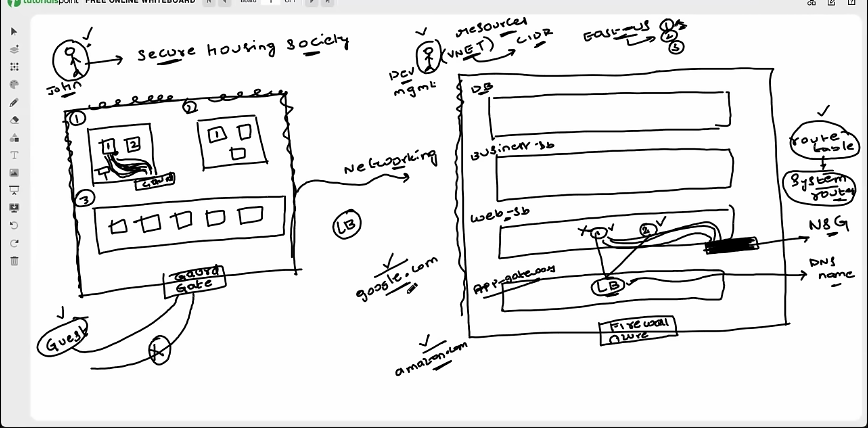 tutorialspoint FREE ONLINE WHITEBOARD
John
Secure housing society
1
2
1
2
Gaurd
1
3
Gaurd
Gate
Guest
Networking
LB
google.com
amazon.com
Dev
mgmt
(VNET)
resources
CIDR
East-US
1
2
3
DB
Business-sb
Web-sb
1
2
App-gateway
LB
Firewall
Azure
route-table
System
routes
NSG
DNS
name